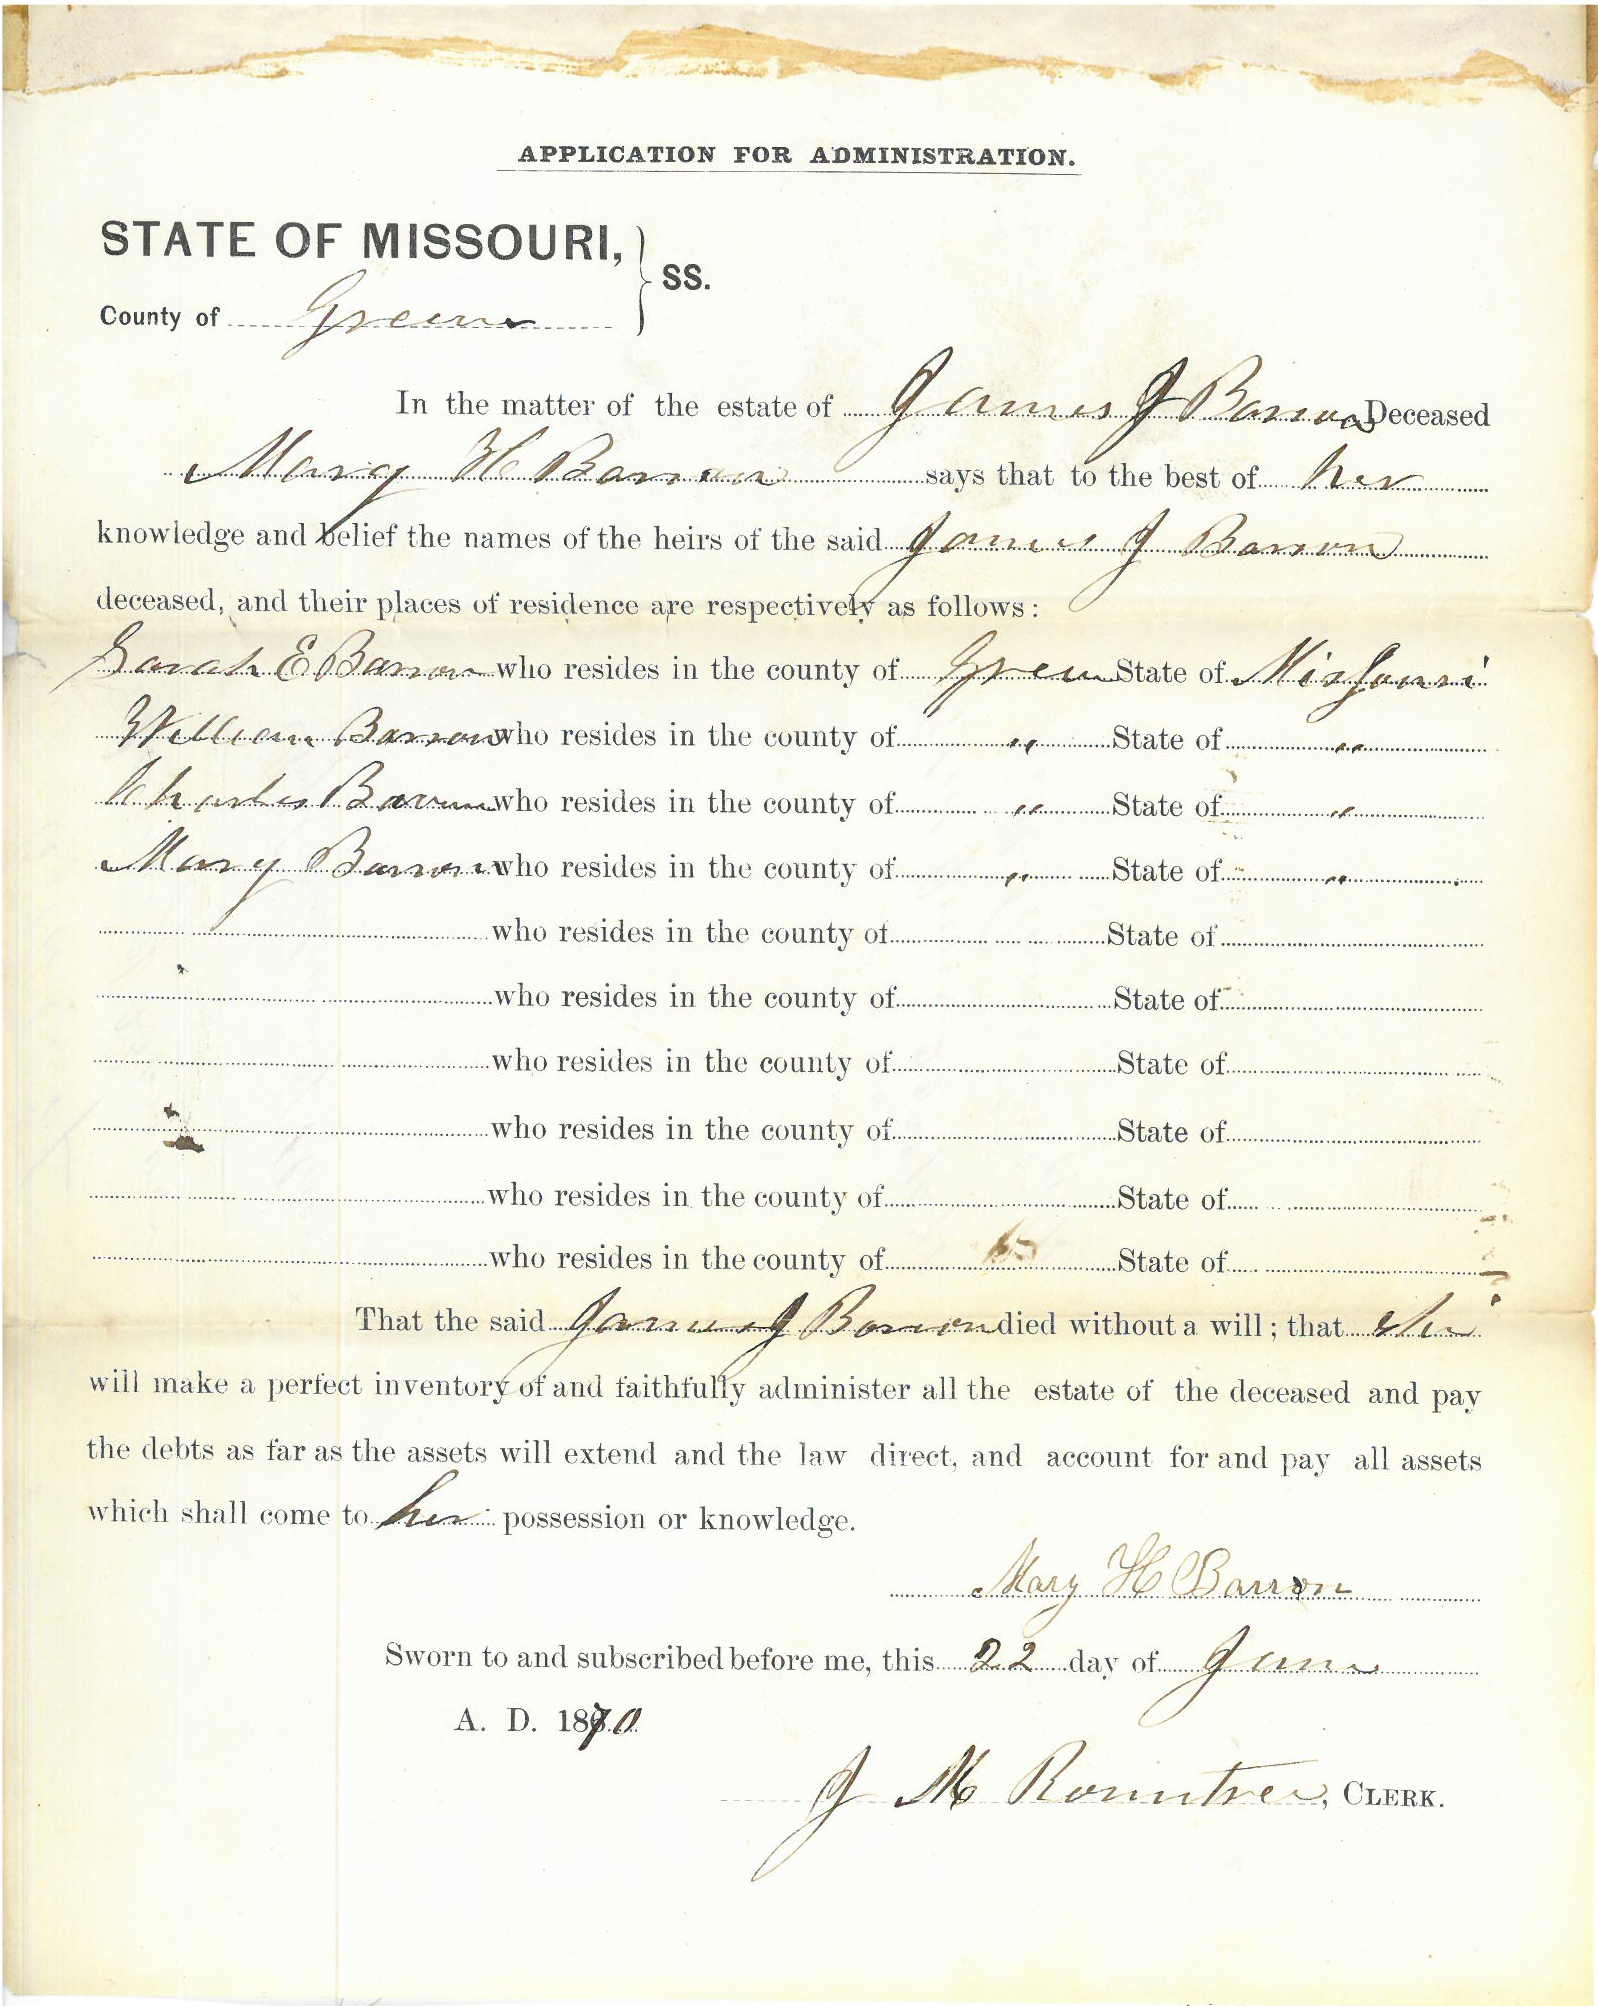 APPLICATION FOR ADMINISTRATION.
STATE OF MISSOURI,
SS.
County of Greene
In the matter of the estate of James J Barron Deceased
Mary H Barron says that to the best of her
knowledge and belief the names of the heirs of the said James J Barron
deceased, and their places of residence are respectively as follows:
Sarah E Barron who resides in the county of Greene State of Missouri
William Barron who resides in the county of " State of "
Charles Barron who resides in the county of " State of "
Mary Barron who resides in the county of " State of "
who resides in the county of State of
who resides in the county of State of
who resides in the county of State of
who resides in the county of State of
who resides in the county of State of
who resides in the county of State of
That the said James J Barron died without a will; that she
will make a perfect inventory of and faithfully administer all the estate of the deceased and pay
the debts as far as the assets will extend and the law direct, and account for and pay all assets
which shall come to her possession or knowledge.
Mary H Barron
Sworn to and subscribed before me, this 22 day of
A. D. 1870
J M Rountree, CLERK.